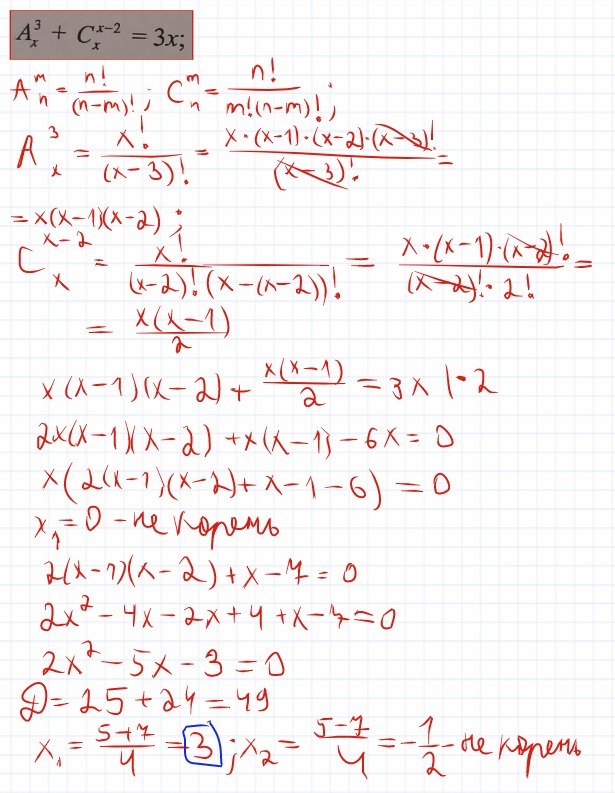 A_x^3 + C_x^{x-2} = 3x;
A_n^m = n!/(n-m)!; C_n^m = n!/(m!(n-m)!);
A_x^3 = x!/(x-3)! = x·(x-1)·(x-2)·(x-3)!/(x-3)! =
= x(x-1)(x-2);
C_x^{x-2} = x!/((x-2)!(x-(x-2))!) = x·(x-1)·(x-2)!/((x-2)!·2!) =
= x(x-1)/2
x(x-1)(x-2) + x(x-1)/2 = 3x |·2
2x(x-1)(x-2) + x(x-1) - 6x = 0
x(2(x-1)(x-2) + x-1-6) = 0
x₁ = 0 - не корень
2(x-1)(x-2) + x - 7 = 0
2x² - 4x - 2x + 4 + x - 7 = 0
2x² - 5x - 3 = 0
D = 25 + 24 = 49
x₁ = (5+7)/4 = 3; x₂ = (5-7)/4 = -1/2 - не корень